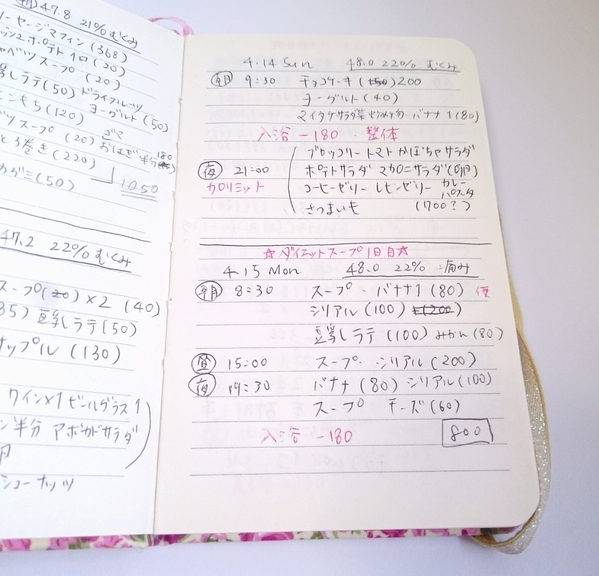 朝 47.8 21% むくみ
ーセージマフィン(368)
ッシュポテト1口(20)
ャベツスープ(20)
乳ラテ(50) ドライフルーツ
ヨーグルト(50)
もち(120)
ツスープ(20) ごま
おはぎ半分 180
とろ巻き(220)
カダミ(50) 1050
47.2 22% むくみ
スープ(20)×2 (40)
35) 豆乳ラテ(50)
ナップル(130)
ワイン×1 ビールグラス1
ン半分 アボカドサラダ
シューナッツ
4.14 Sun 48.0 22% むくみ
朝 9:30 チョコケーキ(150)200
ヨーグルト(40)
マイタケサラダ菜 バナナ1(80)
入浴 -180 整体
ブロッコリー トマト かぼちゃサラダ
夜 21:00 ポテトサラダ マカロニサラダ(卵)
カロリミット コーヒーゼリー レモンゼリー カレー
パスタ
さつまいも (700?)
☆ダイエットスープ1日目☆
4.15 Mon 48.0 22% 痛み
朝 8:30 スープ・バナナ1(80) 便
シリアル(100)
豆乳ラテ(100) みかん(80)
昼 15:00 スープ・シリアル(200)
夜 19:30 バナナ(80) シリアル(100)
スープ チーズ(60)
入浴 -180 800